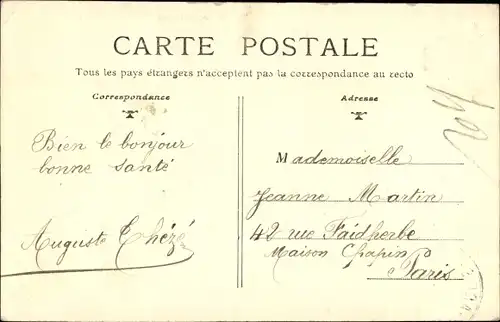 CARTE POSTALE
Tous les pays étrangers n'acceptent pas la correspondance au recto
Correspondance
Adresse
Bien le bonjour
bonne santé
Auguste
Mademoiselle
Jeanne Martin
42 rue Faidherbe
Maison Chapin
Paris